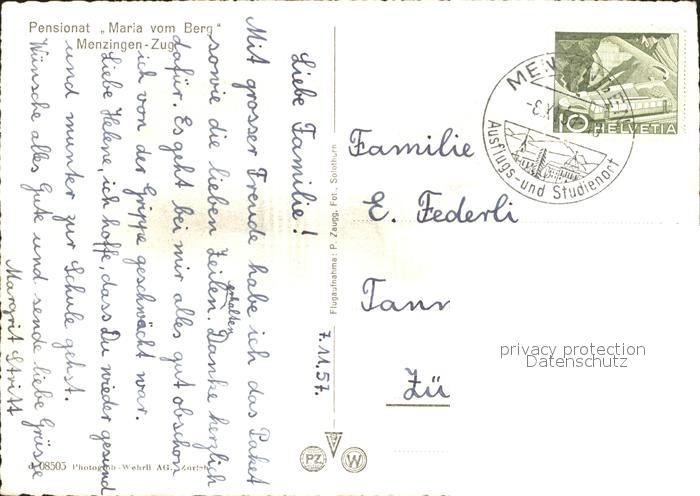 Pensionat „Maria vom Berg“
Menzingen-Zug
7.11.57.
Liebe Familie!
Mit grosser Freude habe ich das Paket
sowie die lieben Zeilen erhalten. Danke herzlich
dafür. Es geht bei mir alles gut obschon
ich von der Grippe geschwächt war.
Liebe Helene, ich hoffe, dass Du wieder gesund
und munter zur Schule gehst.
Wünsche alles Gute und sende liebe Grüsse
Margrit Stritt
Flugaufnahme: P. Zaugg, Fot., Solothurn
Ausflugs- und Studienort
10 HELVETIA
Familie
E. Federli
Tann
Zü
privacy protection
Datenschutz
PZ
W
08505 Photogl.ob-Wehrli AG., Zürich